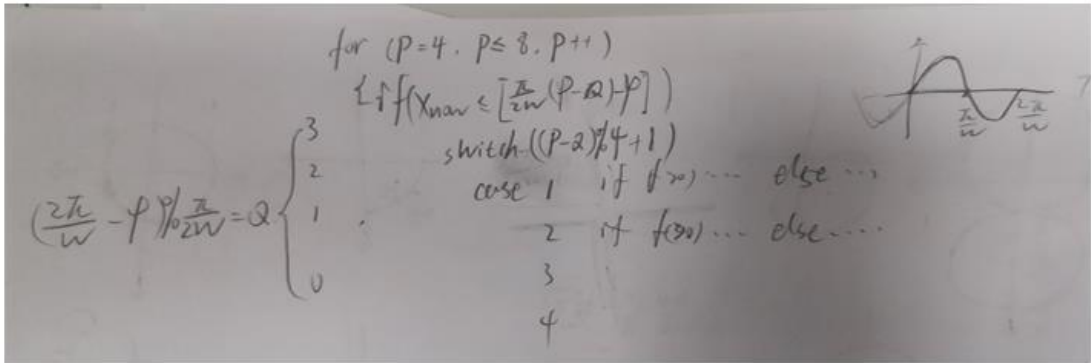 for (P=4. P≤8. P++)
{if(Xnow ≤ [π/2W (P-Q)-φ])
switch((P-2)%4+1)
case 1 if f(>0) ... else ...
2 if f(>0) ... else ....
3
4
(2π/W - φ)%π/2W = Q { 3
2
1
0
π/W
2π/W